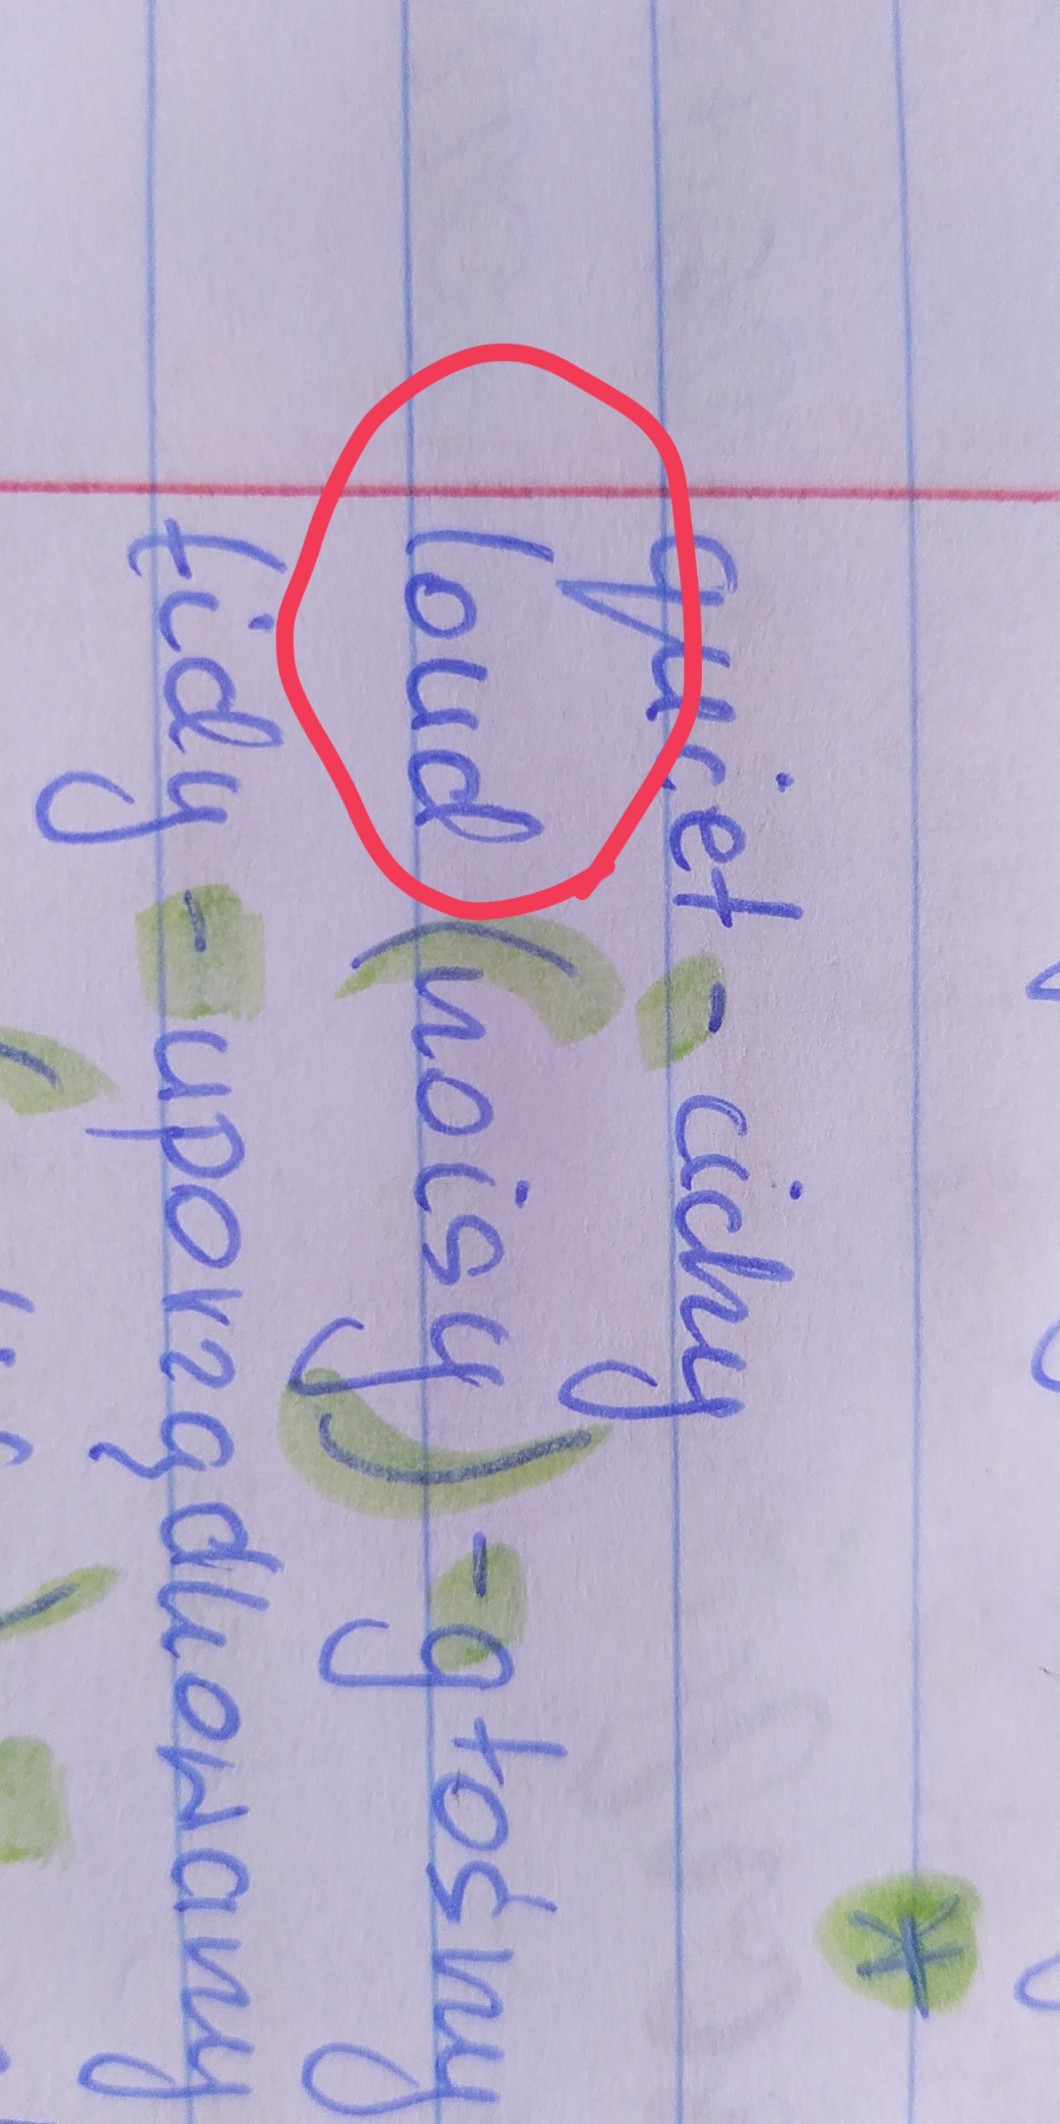 *
quiet - cichy
loud (noisy) - głośny
tidy - uporządkowany